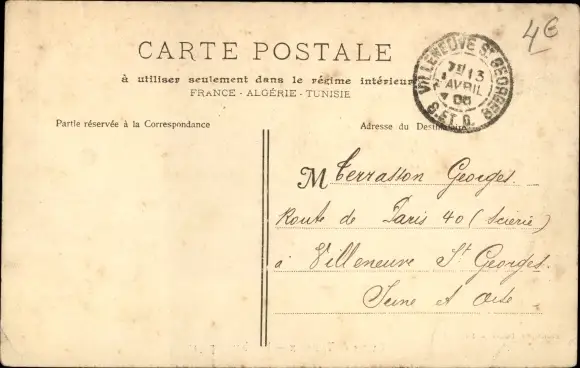 4€
CARTE POSTALE
à utiliser seulement dans le régime intérieur
FRANCE - ALGÉRIE - TUNISIE
VILLENEUVE ST GEORGES
13
AVRIL
S. ET O.
Partie réservée à la Correspondance
Adresse du Destinataire
M Terrasson Georges.
Route de Paris 40 (Scierie)
à Villeneuve St Georges.
Seine et Oise